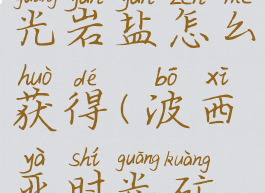 光岩盐怎么
huò dé bō xī
获得(波西
yà shí guāng kuàng
亚时光矿